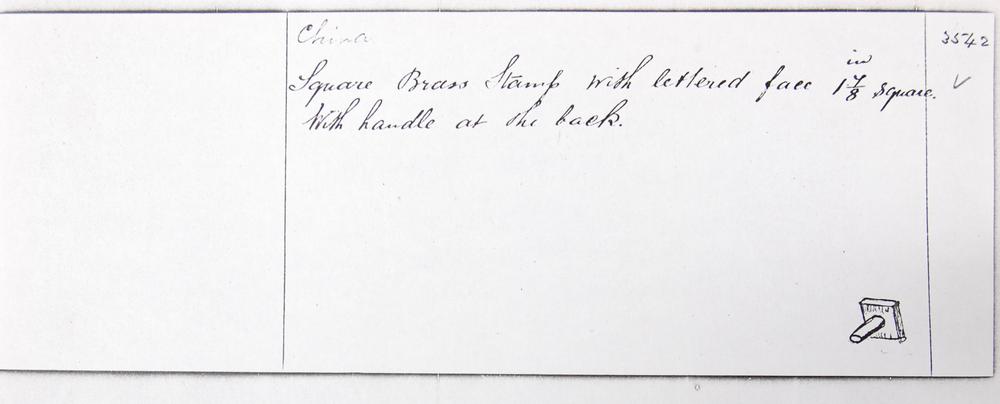 China
3542
Square Brass Stamp with lettered face 1 7/8 in square. ✓
With handle at the back.